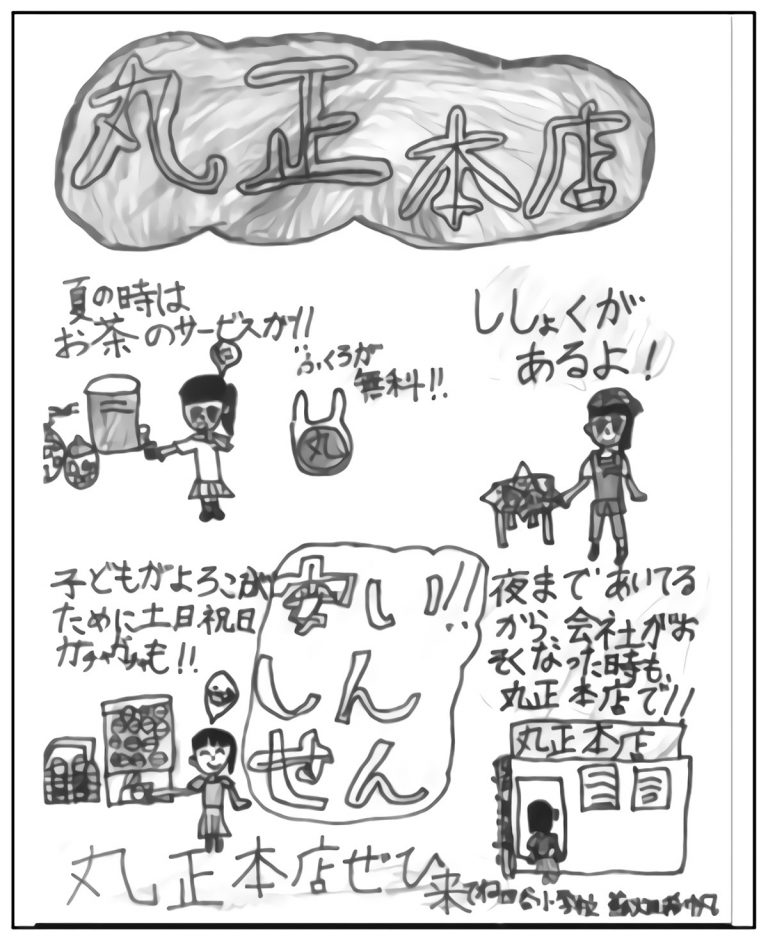 丸正本店
夏の時は
お茶のサービスが!!
ふくろが
無料!!
丸
ししょくが
あるよ!
子どもがよろこぶ
ために土日祝日
ガチャガチャも!!
安い!!
しん
せん
夜まであいてる
から、会社がお
そくなった時も、
丸正本店で!!
丸正本店
丸正本店ぜひ
来てね
谷小学校